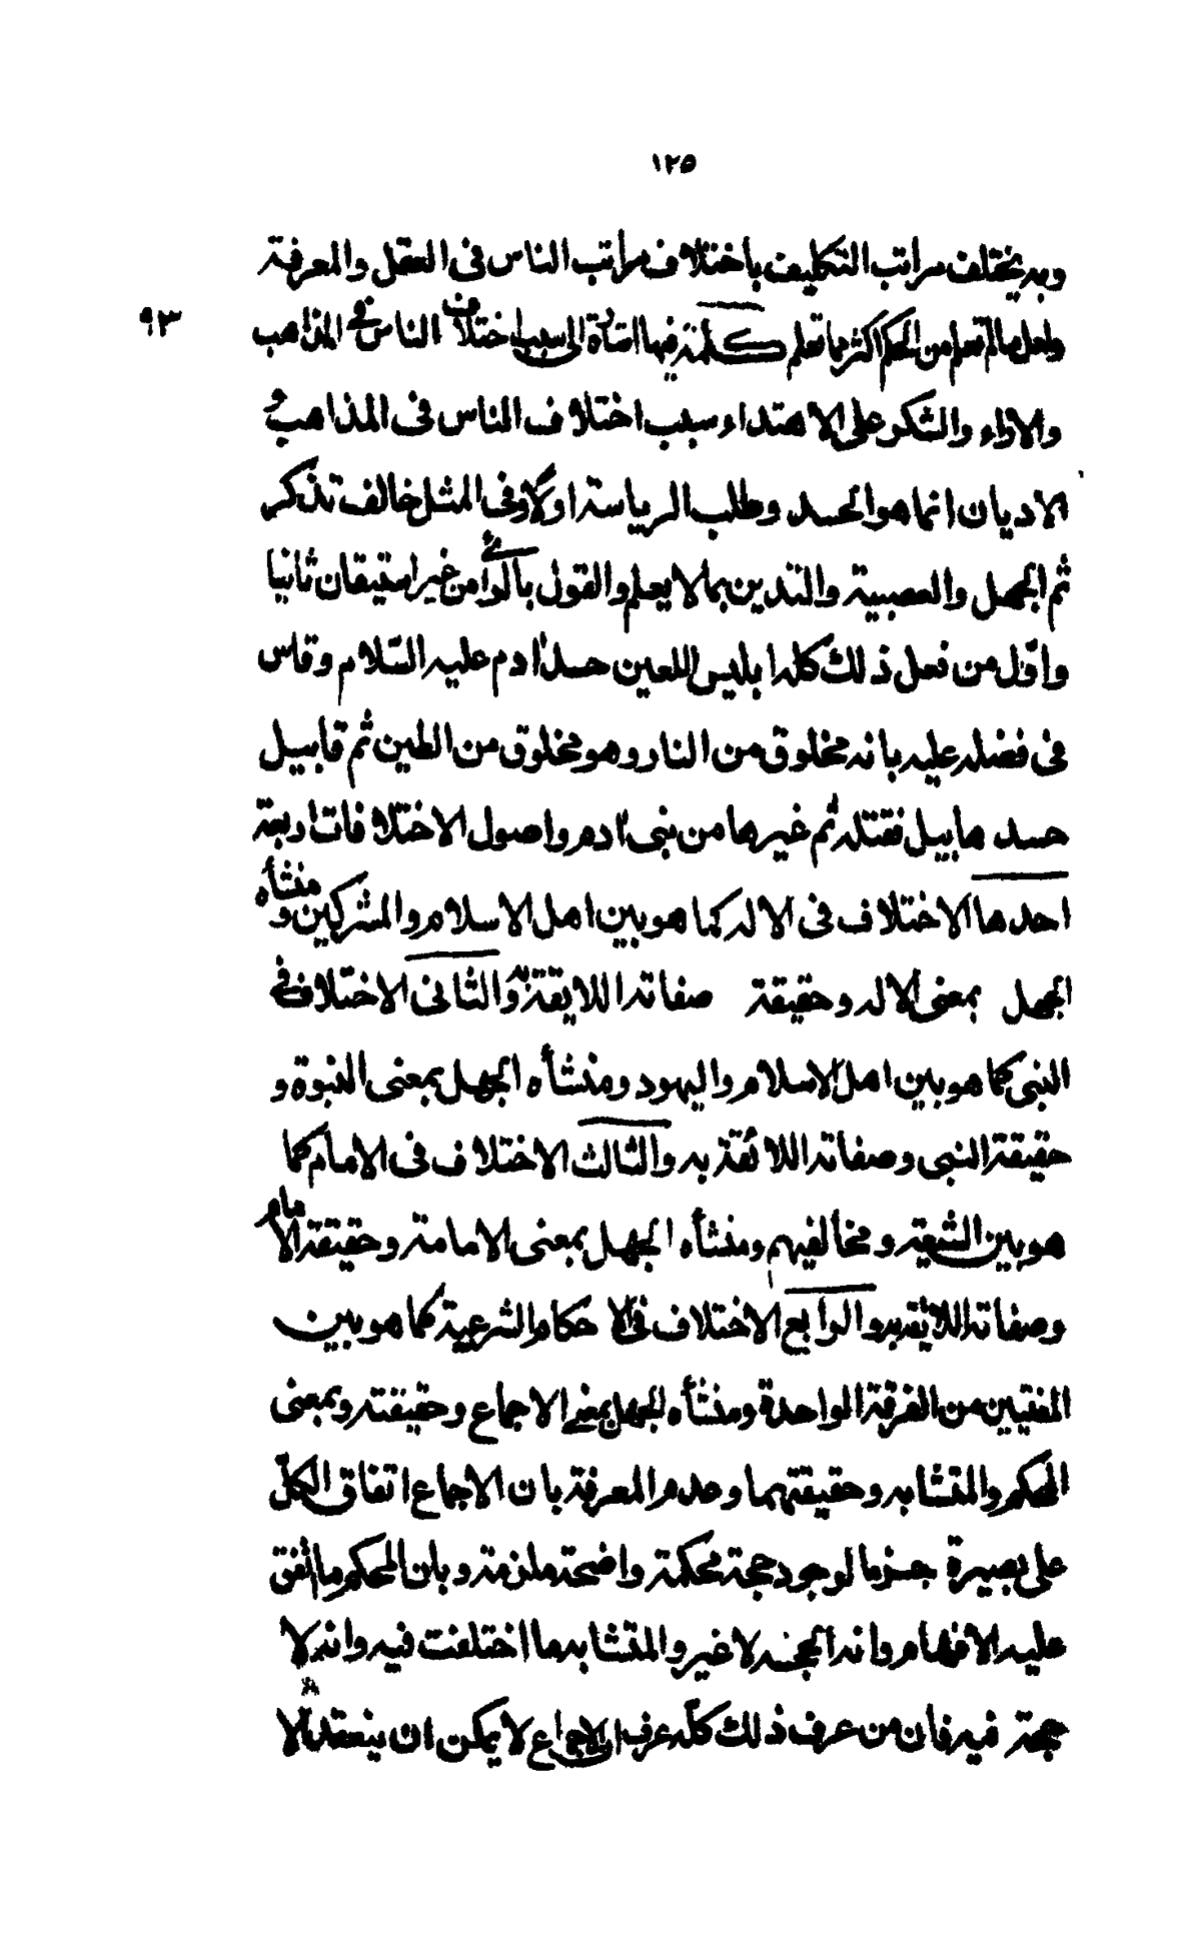 ١٢٥
وبه يختلف مراتب التكليف باختلاف مراتب الناس فى العقل والمعرفة
ولعل مالم تعلم من الحكم اكثر مما تعلم كلمة فيها اشارة الى سبب اختلاف الناس فى المذاهب
٩٣
والاراء والشكر على الاهتداء سبب اختلاف الناس فى المذاهب و
الاديان انما هو الحسد وطلب الرياسة اولا وفى المثل خالف تذكر
ثم الجهل والعصبية والتدين بما لا يعلم والقول بالراى من غير استيقان ثانيا
واوّل من فعل ذلك كله ابليس اللعين حسد ادم عليه السّلام وقاس
فى فضله عليه بانه مخلوق من النار وهو مخلوق من الطين ثم قابيل
حسد هابيل فقتله ثم غيرها من بنى ادم واصول الاختلافات اربعة
احدها الاختلاف فى الاله كما هو بين اهل الاسلام والمشركين ومنشأه
الجهل بمعنى الاله وحقيقة صفاته اللايقة به والثانى الاختلاف فى
النبى كما هو بين اهل الاسلام واليهود ومنشأه الجهل بمعنى النبوة و
حقيقة النبى وصفاته اللائقة به والثالث الاختلاف فى الامام كما
هو بين الشيعة ومخالفيهم ومنشأه الجهل بمعنى الامامة وحقيقة الامام
وصفاته اللائقة به والرابع الاختلاف فى الاحكام الشرعية كما هو بين
المفتيين من الفرقة الواحدة ومنشأه الجهل بمعنى الاجماع وحقيقته وبمعنى
المحكم والمتشابه وحقيقتهما وعدم المعرفة بان الاجماع اتفاق الكلّ
على بصيرة جزما لوجود حجة محكمة واضحة ملزمة وبان المحكم ما اتفق
عليه الافهام وانه الحجة لا غير والمتشابه ما اختلفت فيه وانه لا
حجة فيه فان من عرف ذلك كلّه عرف ان الاجماع لا يمكن ان ينعقد الا